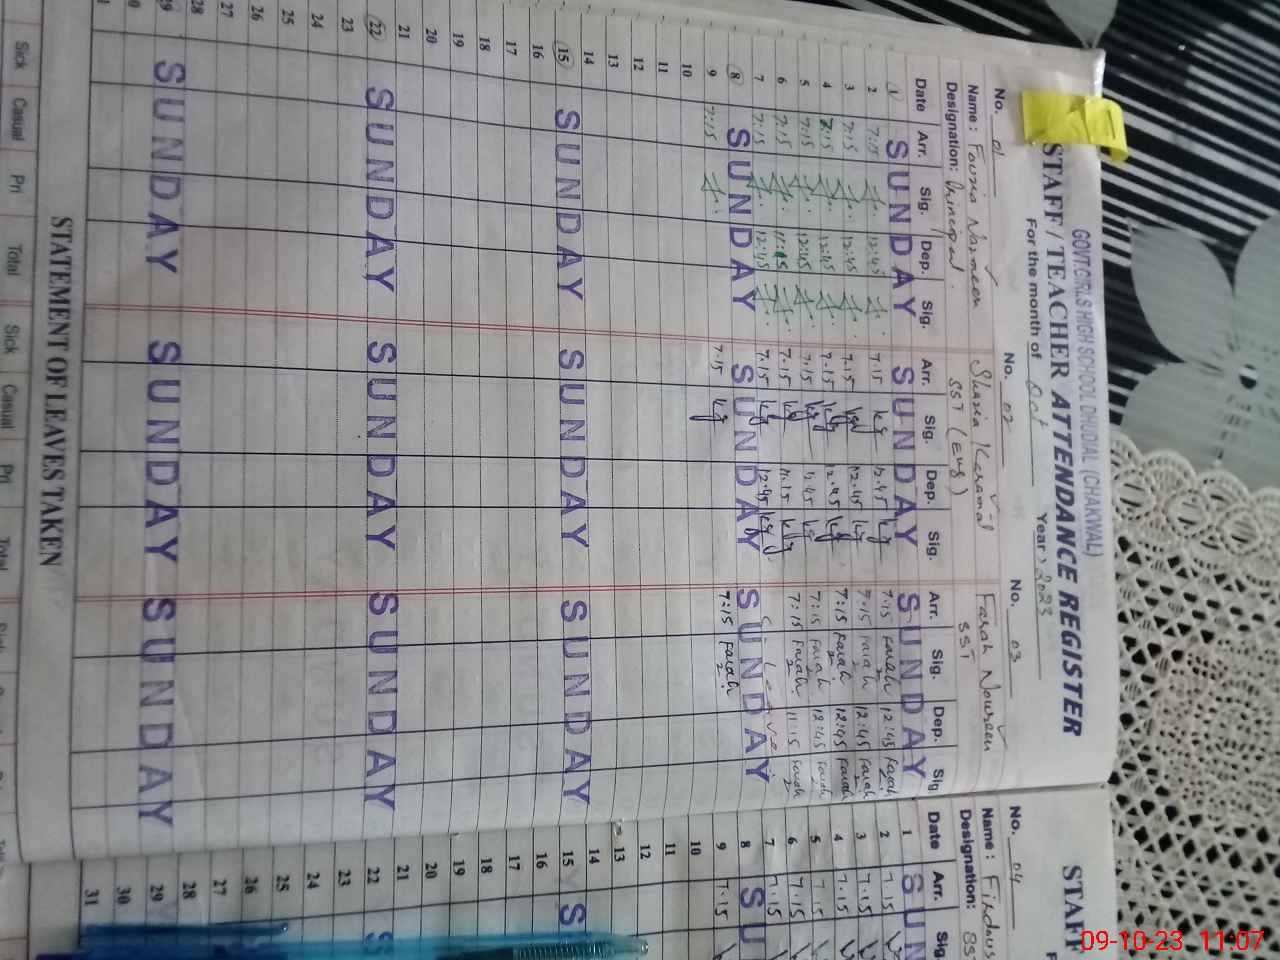 GOVT.GIRLS HIGH SCHOOL DHUDIAL (CHAKWAL)
STAFF / TEACHER ATTENDANCE REGISTER
For the month of Oct Year 2023
No. 01 No. 02 No. 03
Name : Fouzia Nasmeen Shazia Karamat Farah Nourseen
Designation: Principal. SST (Eng) SST
Date Arr. Sig. Dep. Sig. Arr. Sig. Dep. Sig. Arr. Sig. Dep. Sig
1 SUNDAY SUNDAY SUNDAY
2 7:15 12:45 7.15 12.45 7:15 Farah 12:45 Farah
3 7:15 12:45 7.15 12.45 7:15 Farah 12:45 Farah
4 7:15 12:45 7.15 12.45 7:15 Farah 12:45 Farah
5 7:15 12:45 7.15 12.45 7:15 Farah 12:45 Farah
6 7:15 11:15 7.15 11.15 7:15 Farah 11:15 Farah
7 7:15 12:45 7.15 12.45 C- Leave
8 SUNDAY SUNDAY SUNDAY
9 7:15 7.15 7:15 Farah
10
11
12
13
14
15 SUNDAY SUNDAY SUNDAY
16
17
18
19
20
21
22 SUNDAY SUNDAY SUNDAY
23
24
25
26
27
28
29 SUNDAY SUNDAY SUNDAY
STATEMENT OF LEAVES TAKEN
Sick Casual Pri Total Sick Casual Pri Total
STAFF
No. 04
Name : Firdous
Designation: SS
Date Arr. Sig.
1 SUN
2 7.15
3 7.15
4 7.15
5 7.15
6 7.15
7 7.15
8 SU
9 7.15
10
11
12
13
14
15 S
16
17
18
19
20
21
22 S
23
24
25
26
27
28
29
30
31
09-10-23 11:07